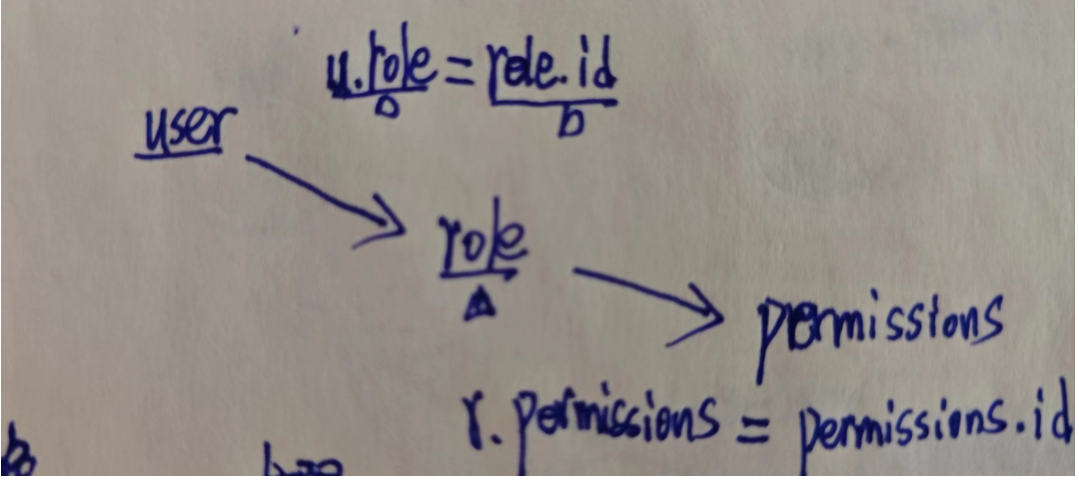 u.role = role.id
user
role
permissions
r. permissions = permissions.id